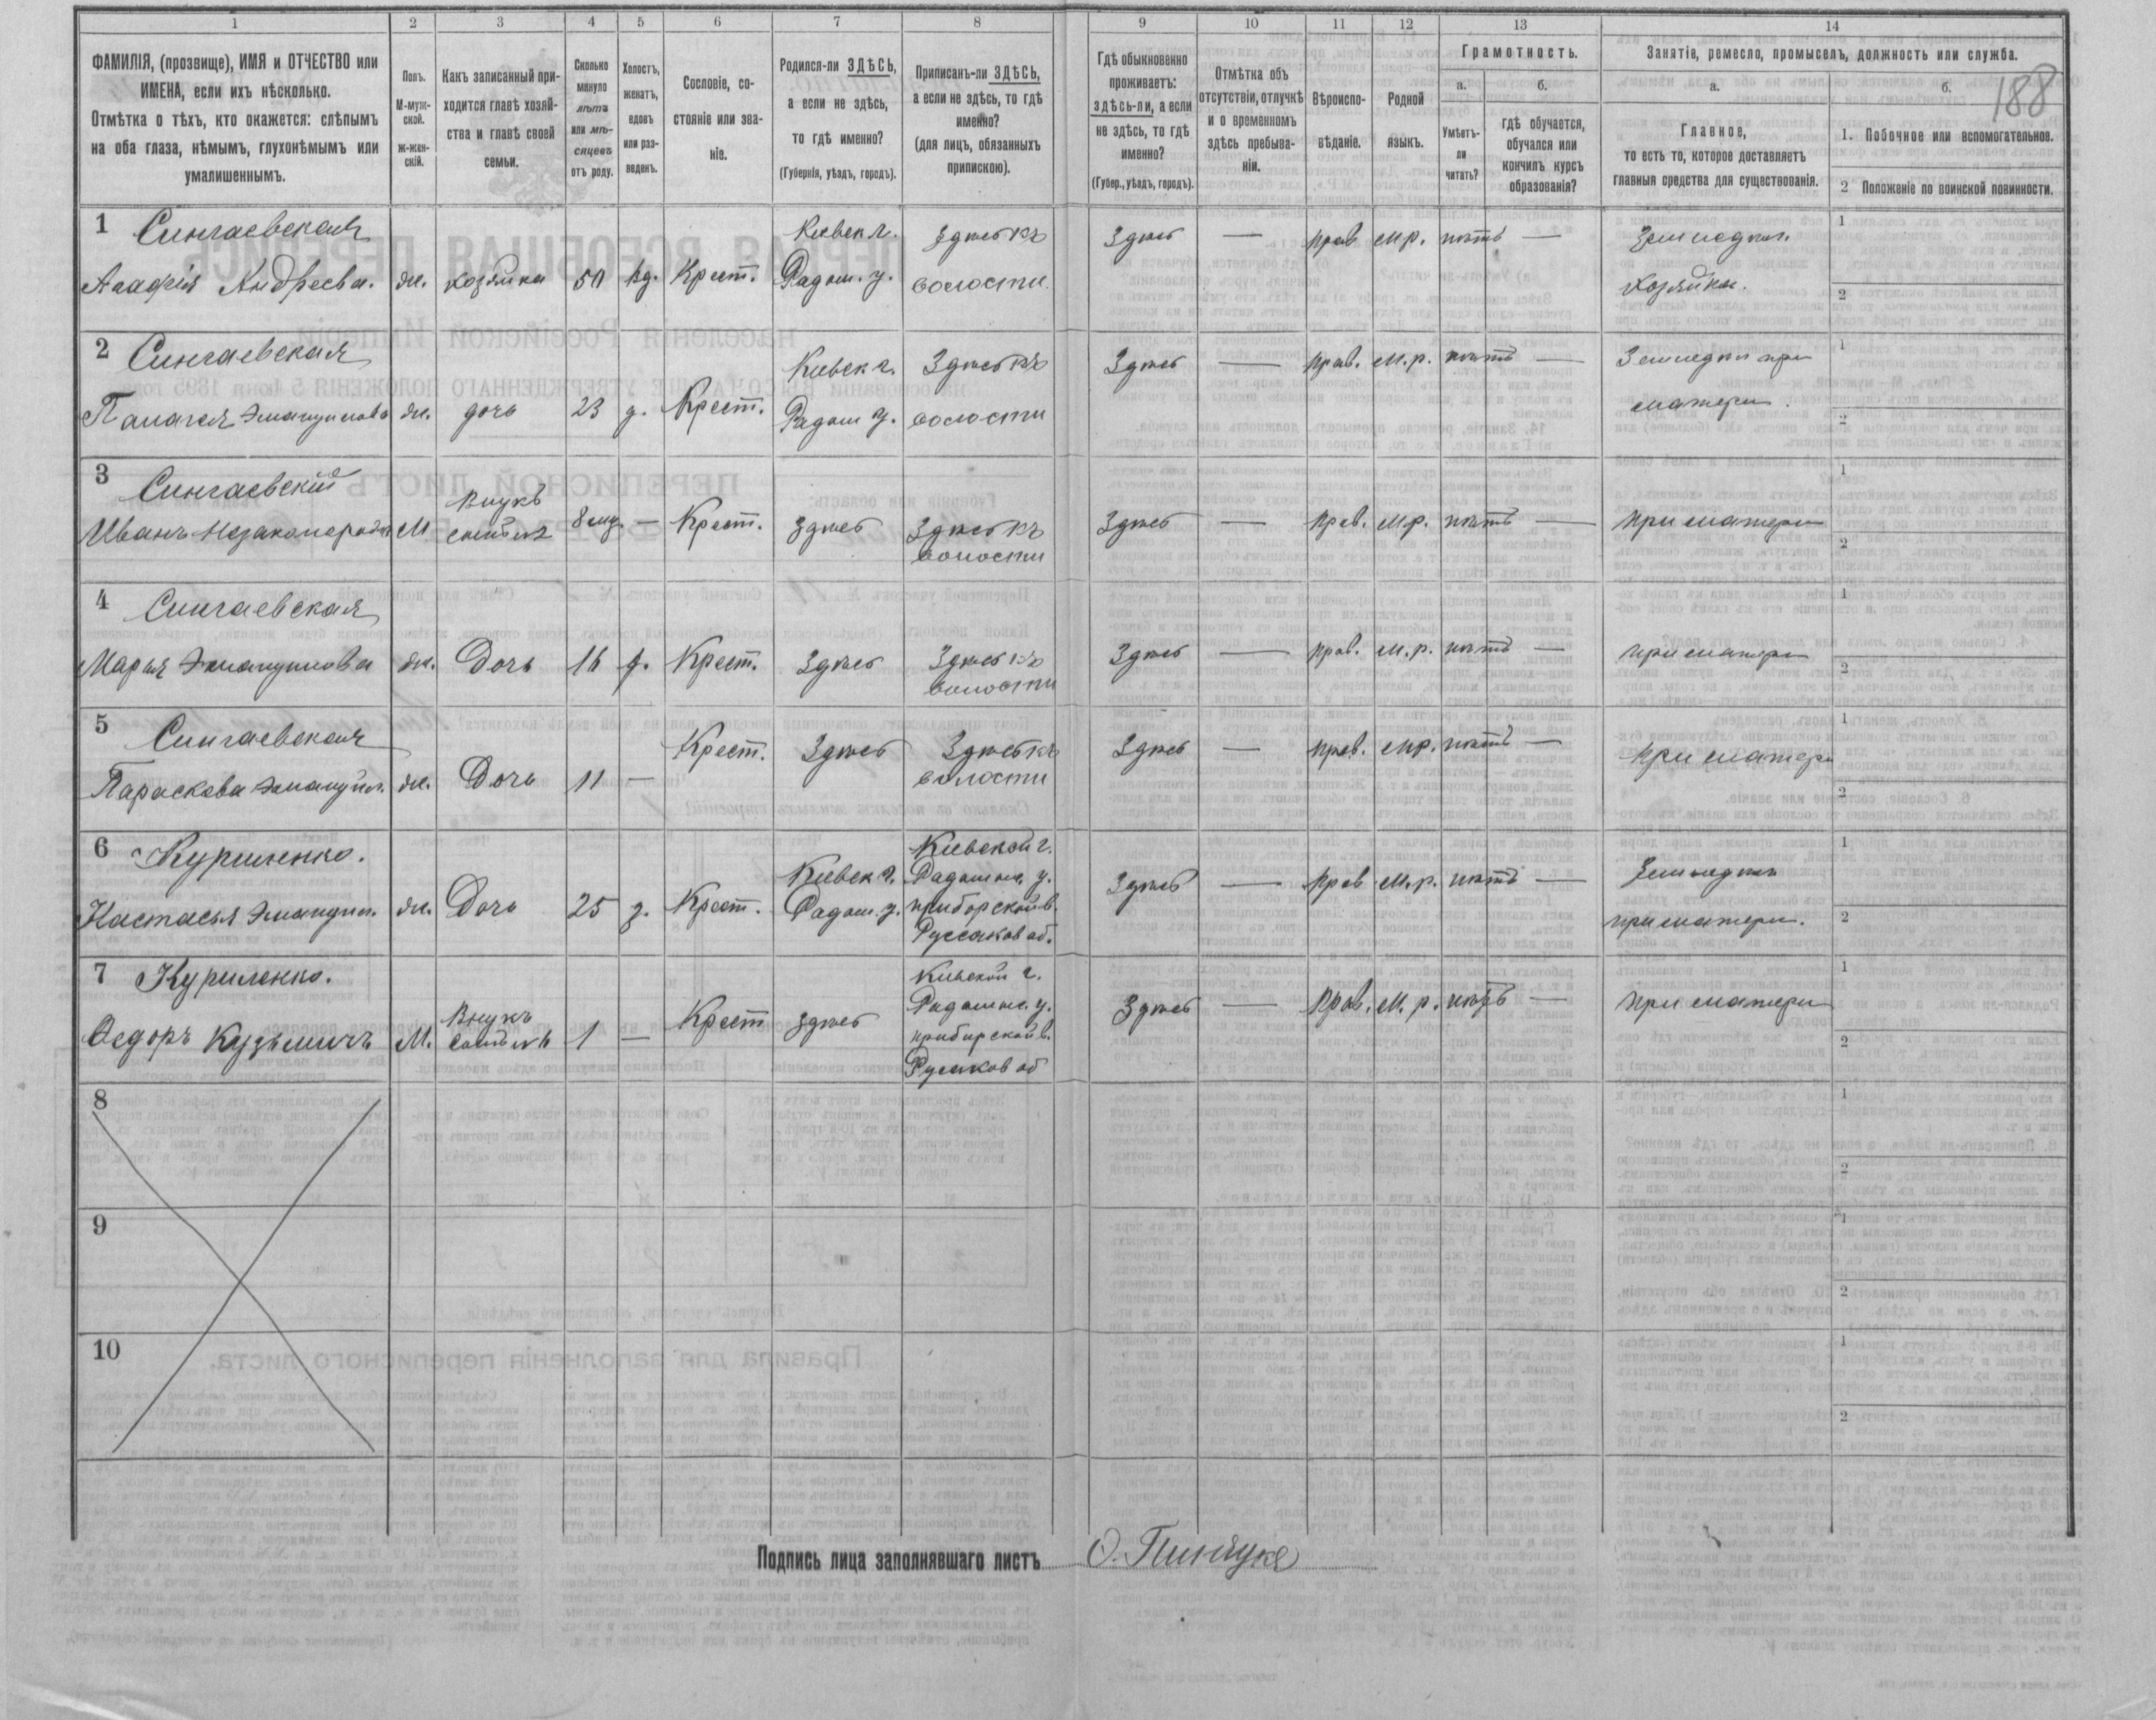 1 2 3 4 5 6 7 8 9 10 11 12 13 14
188
ФАМИЛІЯ, (прозвище), ИМЯ и ОТЧЕСТВО или
ИМЕНА, если ихъ нѣсколько.
Отмѣтка о тѣхъ, кто окажется: слѣпымъ
на оба глаза, нѣмымъ, глухонѣмымъ или
умалишеннымъ.
Полъ.
М-муж-
ской.
ж-жен-
скій.
Какъ записанный при-
ходится главѣ хозяй-
ства и главѣ своей
семьи.
Сколько
минуло
лѣтъ
или мѣ-
сяцевъ
отъ роду.
Холостъ,
женатъ,
вдовъ
или раз-
веденъ.
Сословіе, со-
стояніе или зва-
ніе.
Родился-ли ЗДѢСЬ,
а если не здѣсь,
то гдѣ именно?
(Губернія, уѣздъ, городъ).
Приписанъ-ли ЗДѢСЬ,
а если не здѣсь, то гдѣ
именно?
(для лицъ, обязанныхъ
припискою).
Гдѣ обыкновенно
проживаетъ:
здѣсь-ли, а если
не здѣсь, то гдѣ
именно?
(Губер., уѣздъ, городъ).
Отмѣтка объ
отсутствіи, отлучкѣ
и о временномъ
здѣсь пребыва-
ніи.
Вѣроиспо-
вѣданіе.
Родной
языкъ.
Грамотность.
а.
Умѣетъ-
ли
читать?
б.
гдѣ обучается,
обучался или
кончилъ курсъ
образованія?
Занятіе, ремесло, промыселъ, должность или служба.
а.
Главное,
то есть то, которое доставляетъ
главныя средства для существованія.
б.
1. Побочное или вспомогательное.
2 Положеніе по воинской повинности.
1 Сингаевская Кіевск г. Здѣсь къ Здѣсь — прав. м.р. нѣтъ — Земледѣл. 1
Агафія Андреева. ж. хозяйка 50 вд. Крест. Радом. у. волости. Хозяйка. 2
2 Сингаевская Кіевск г. Здѣсь къ Здѣсь — прав. м.р. нѣтъ — Земледѣл при 1
Эмануилова ж. дочь 23 д. Крест. Радом у. волости матери. 2
3 Сингаевскій Внукъ 1
Иванъ М 8 мц. — Крест. Здѣсь Здѣсь къ Здѣсь — прав. м.р. нѣтъ — при матери 2
волости
4 Сингаевская 1
Марья Эмануилова ж. Дочь 16 д. Крест. Здѣсь Здѣсь къ Здѣсь — прав. м.р. нѣтъ — при матери 2
волости
5 Сингаевская Крест. Здѣсь Здѣсь къ Здѣсь — прав. м.р. нѣтъ — при матери 1
Параскева Эмануил. ж. Дочь 11 — волости 2
6 Куриленко. Кіевской г. 1
Кіевск г. Радомыс. у. Здѣсь — прав м.р. нѣтъ — Земледѣл
Настасья Эмануил. ж. Дочь 25 з. Крест. Радом. у. приборской в. при матери. 2
Руссаков об.
7 Куриленко. Кіевской г. 1
Внукъ Радомыс. у. Здѣсь — Прав. м.р. нѣтъ — при матери
Ѳедоръ Кузьмичъ М. 1 — Крест здѣсь приборской в. 2
Русаков об
8 1
2
9 1
2
10 1
2
Подпись лица заполнявшаго листъ О. Пинчукъ